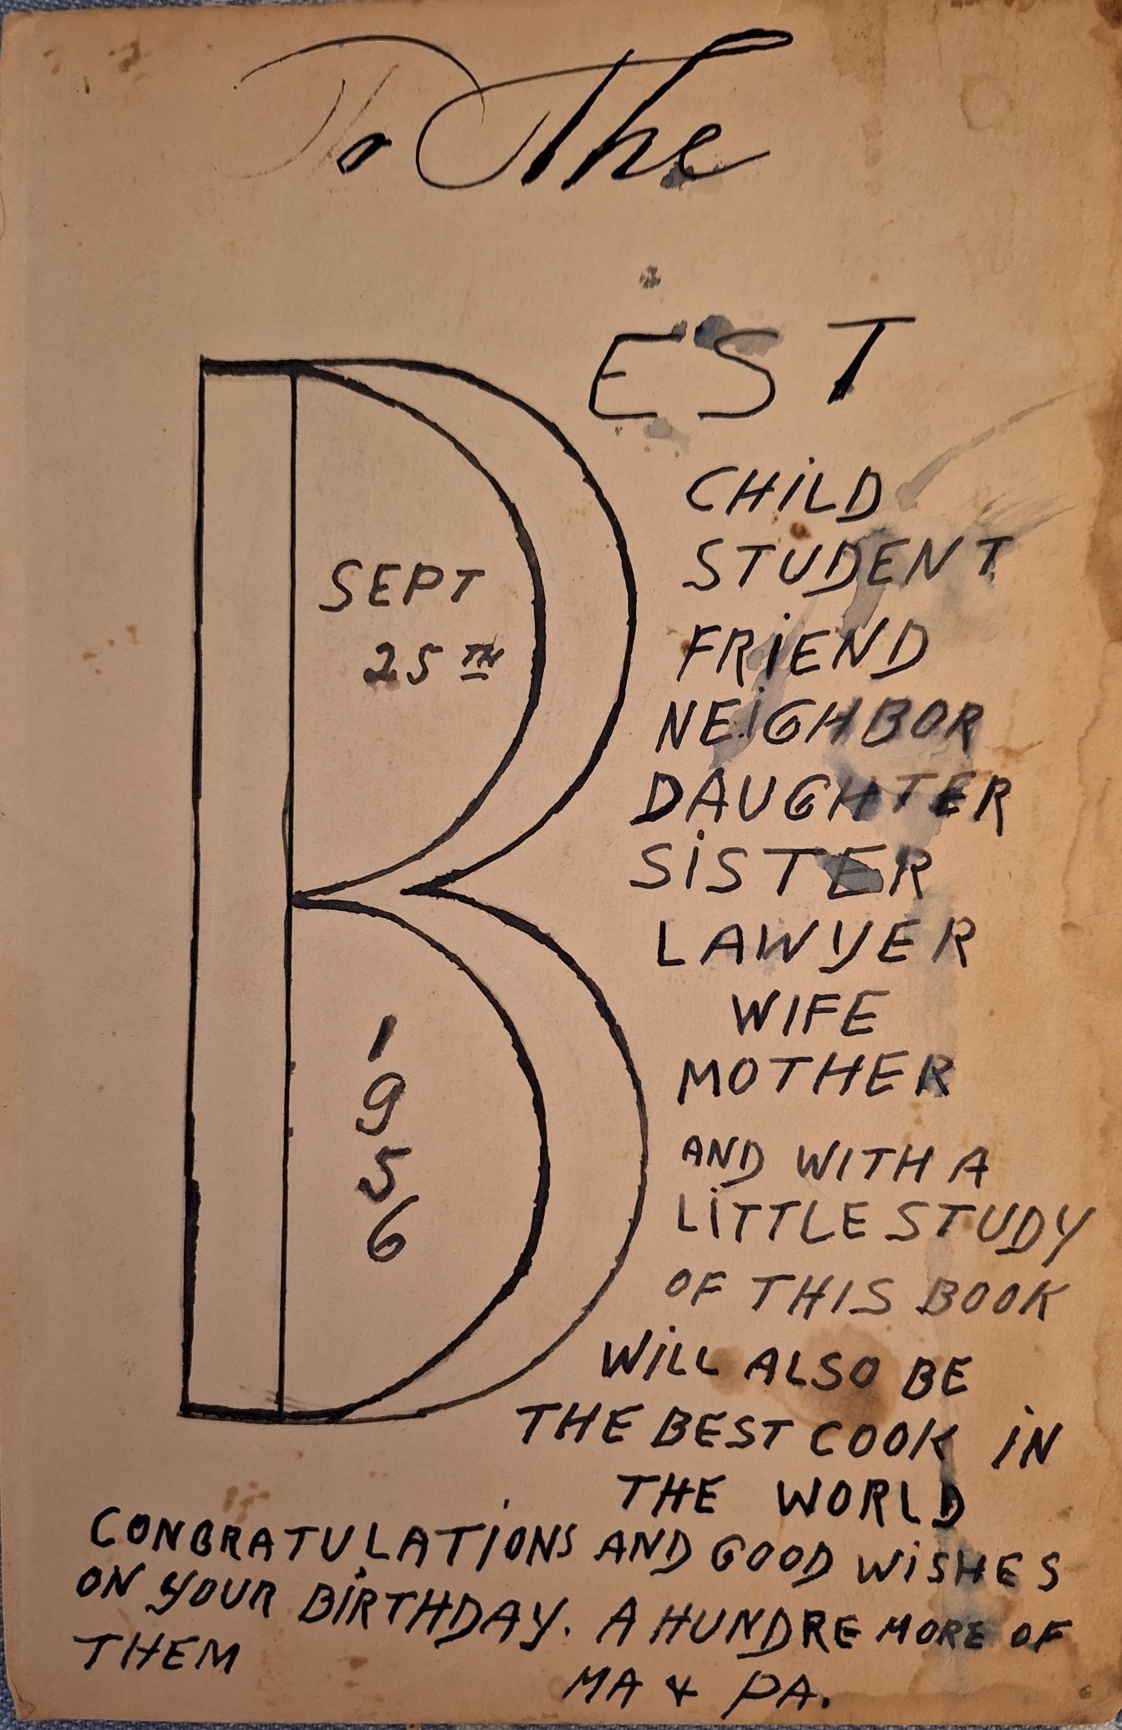 To The
BEST
SEPT
25TH
1956
CHiLD
STUDENT
FRiEND
NEiGHBOR
DAUGHTER
SiSTER
LAWYER
WIFE
MOTHER
AND WITH A
LiTTLE STUDY
OF THIS BOOK
WiLL ALSO BE
THE BEST COOK iN
THE WORLD
CONGRATULATiONS AND GOOD WiSHES
ON YOUR BiRTHDAY. A HUNDRE MORE OF
THEM
MA & PA.